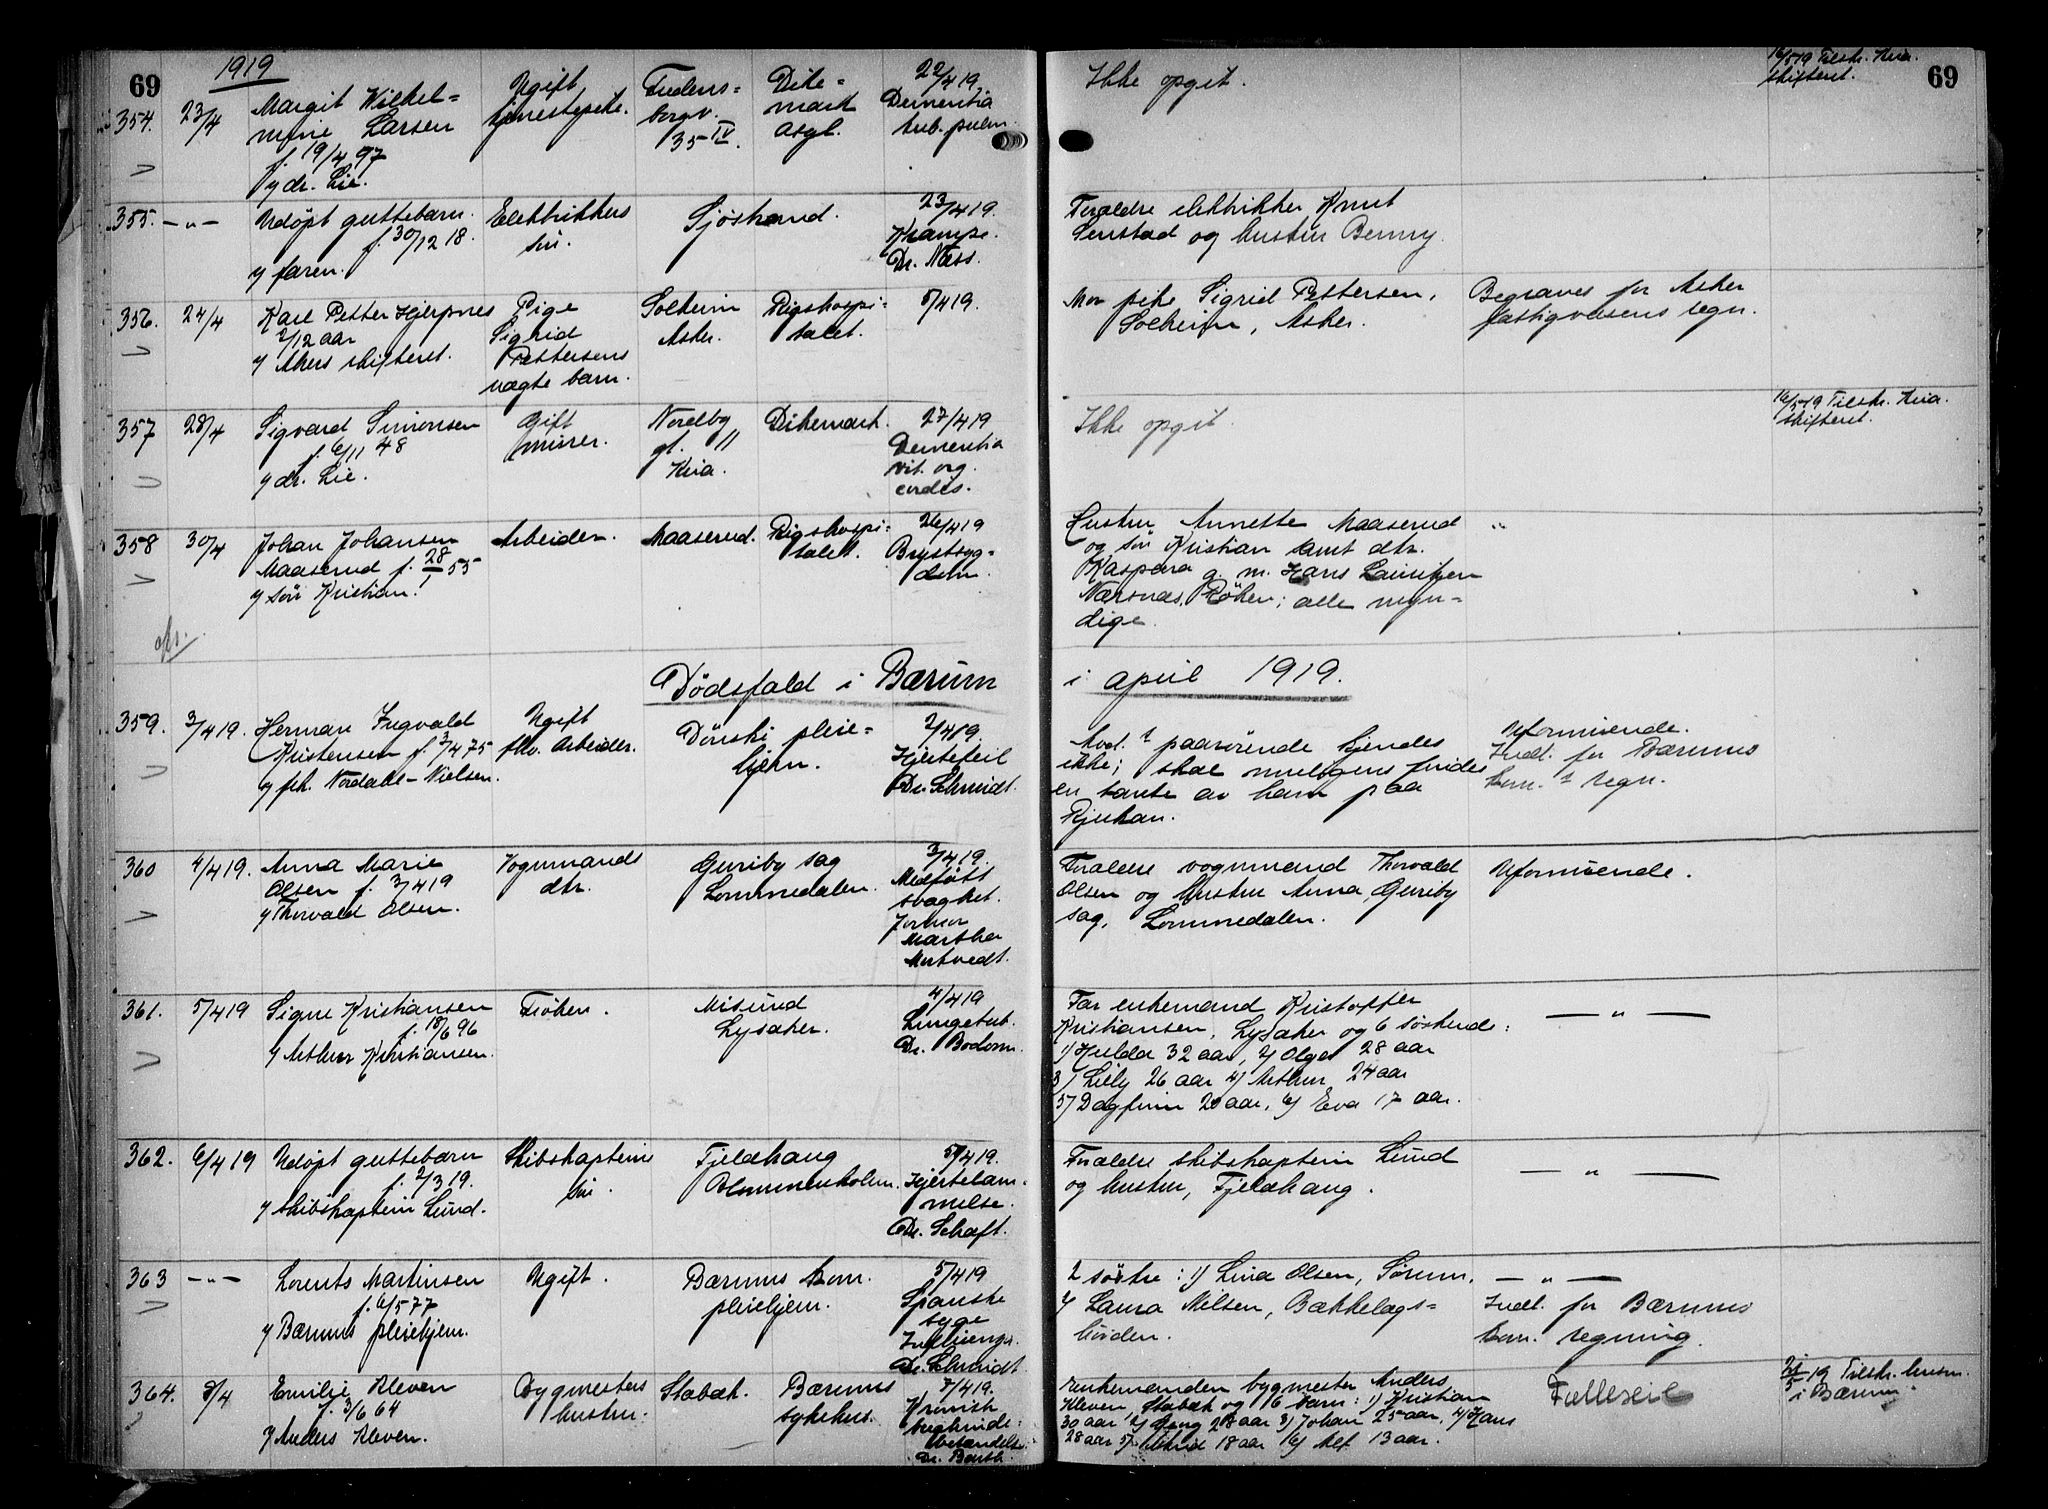 69
1919
69
354.
23/4
Margit Wilhel=
mine Larsen
f. 19/4 97
v/ dr. Lie.
Ugift
tjenestepike.
Fredens=
borgv.
35 IV.
Dike=
mark
Asyl.
22/4 19.
Dementia
tub. pulm.
Ikke opgit.
16/5 19 Tilskr. Kria.
skifteret.
355.
—„—
Udöpt guttebarn
f. 30/12 18.
v/ faren.
Elektrikers
sön.
Sjöstrand.
23/4 19.
Krampe.
Dr. Næss.
Forældre elektriker Knut
Senstad og hustru Benny.
356.
24/4
Karl Petter Hjerpnes
2/12 aar
v/ Akers skifteret.
Pige
Sigrid
Pettersens
uægte barn.
Solheim
Asker.
Rigshospi=
talet.
5/4 19.
Mor pike Sigrid Pettersen,
Solheim, Asker.
Begraves for Asker
fattigvæsens regn.
357
28/4
Sigvard Simonsen
f. 6/11 48
v/ dr. Lie.
Gift
murer.
Nordby
gt. 11
Kria.
Dikemark.
27/4 19
Dementia
vit. org.
cordis.
Ikke opgit.
16/5 19 Tilskr. Kria.
skifteret.
358
30/4
Johan Johansen
Maaserud f. 28/1 55
v/ sön Kristian.
Arbeider.
Maaserud.
Rigshospi=
talet.
26/4 19
Brystsyg=
dom.
Hustru Annette Maaserud
og sön Kristian samt dtr.
Kaspara g. m. Hans Lauritzen
Nærsnes, Röken; alle myn=
dige.
„
Dödsfald i Bærum
i april 1919.
359.
3/4 19.
Herman Ingvald
Kristensen f. 3/4 75
v/ frk. Nordahl-Nielsen.
Ugift
fhv. Arbeider.
Dönski pleie=
hjem.
2/4 19.
Hjertefeil
Dr. Schmidt.
Avd.s paarörende kjendes
ikke; skal muligens findes
en tante av ham paa
Rjukan.
Uformuende.
Indl. for Bærums
kom.s regn.
360
4/4 19.
Anna Marie
Olsen f. 3/4 19
v/ Thorvald Olsen.
Vognmands
dtr.
Guriby sag
Lommedalen.
3/4 19.
Medfött
svaghet.
Jormor
Martha
Mortvedt.
Forældre vognmand Thorvald
Olsen og hustru Anna, Guriby
sag, Lommedalen.
Uformuende.
361.
5/4 19
Signe Kristiansen
f. 18/6 96
v/ Arthur Kristiansen.
Fröken.
Misund
Lysaker.
4/4 19
Lungetub.
Dr. Bodom.
Far enkemand Kristoffer
Kristiansen, Lysaker og 6 söskende:
1/ Hulda 32 aar, 2/ Olga 28 aar
3/ Lilly 26 aar 4/ Arthur 24 aar
5/ Dagfinn 20 aar, 6/ Eva 17 aar.
— „ —
362.
6/4 19
Udöpt guttebarn
f. 2/3 19.
v/ skibskaptein Lund.
Skibskapteins
sön.
Fjeldhaug
Blommenholm.
5/4 19.
Hjertelam=
melse.
Dr. Schaft.
Forældre skibskaptein Lund
og hustru, Fjeldhaug.
— „ —
363
—„—
Lorents Martinsen
f. 6/5 77
v/ Bærums pleiehjem.
Ugift.
Bærums kom.
pleiehjem.
5/4 19
Spanske
syge
Dr. Schmidt
2 söstre: 1/ Lina Olsen, Sörum,
2/ Laura Nilsen, Bækkelags=
— „ —
Indl. for Bærums
kom. regning.
364.
8/4
Emilie Kleven
f. 3/6 64
v/ Anders Kleven.
Bygmesters
hustru.
Stabæk.
Bærums
sykehus.
7/4 19.
Kronisk
bukhinde=
betændelse.
Dr. Barth.
Enkemanden bygmester Anders
Kleven, Stabæk og 6 barn: 1/ Kristian
30 aar 2/ 28 aar 3/ Johan 25 aar, 4/ Hans
28 aar 5/ Astrid 18 aar 6/ Alf 13 aar.
Fælleseie
21/5 19 Tilskr.
i Bærum.